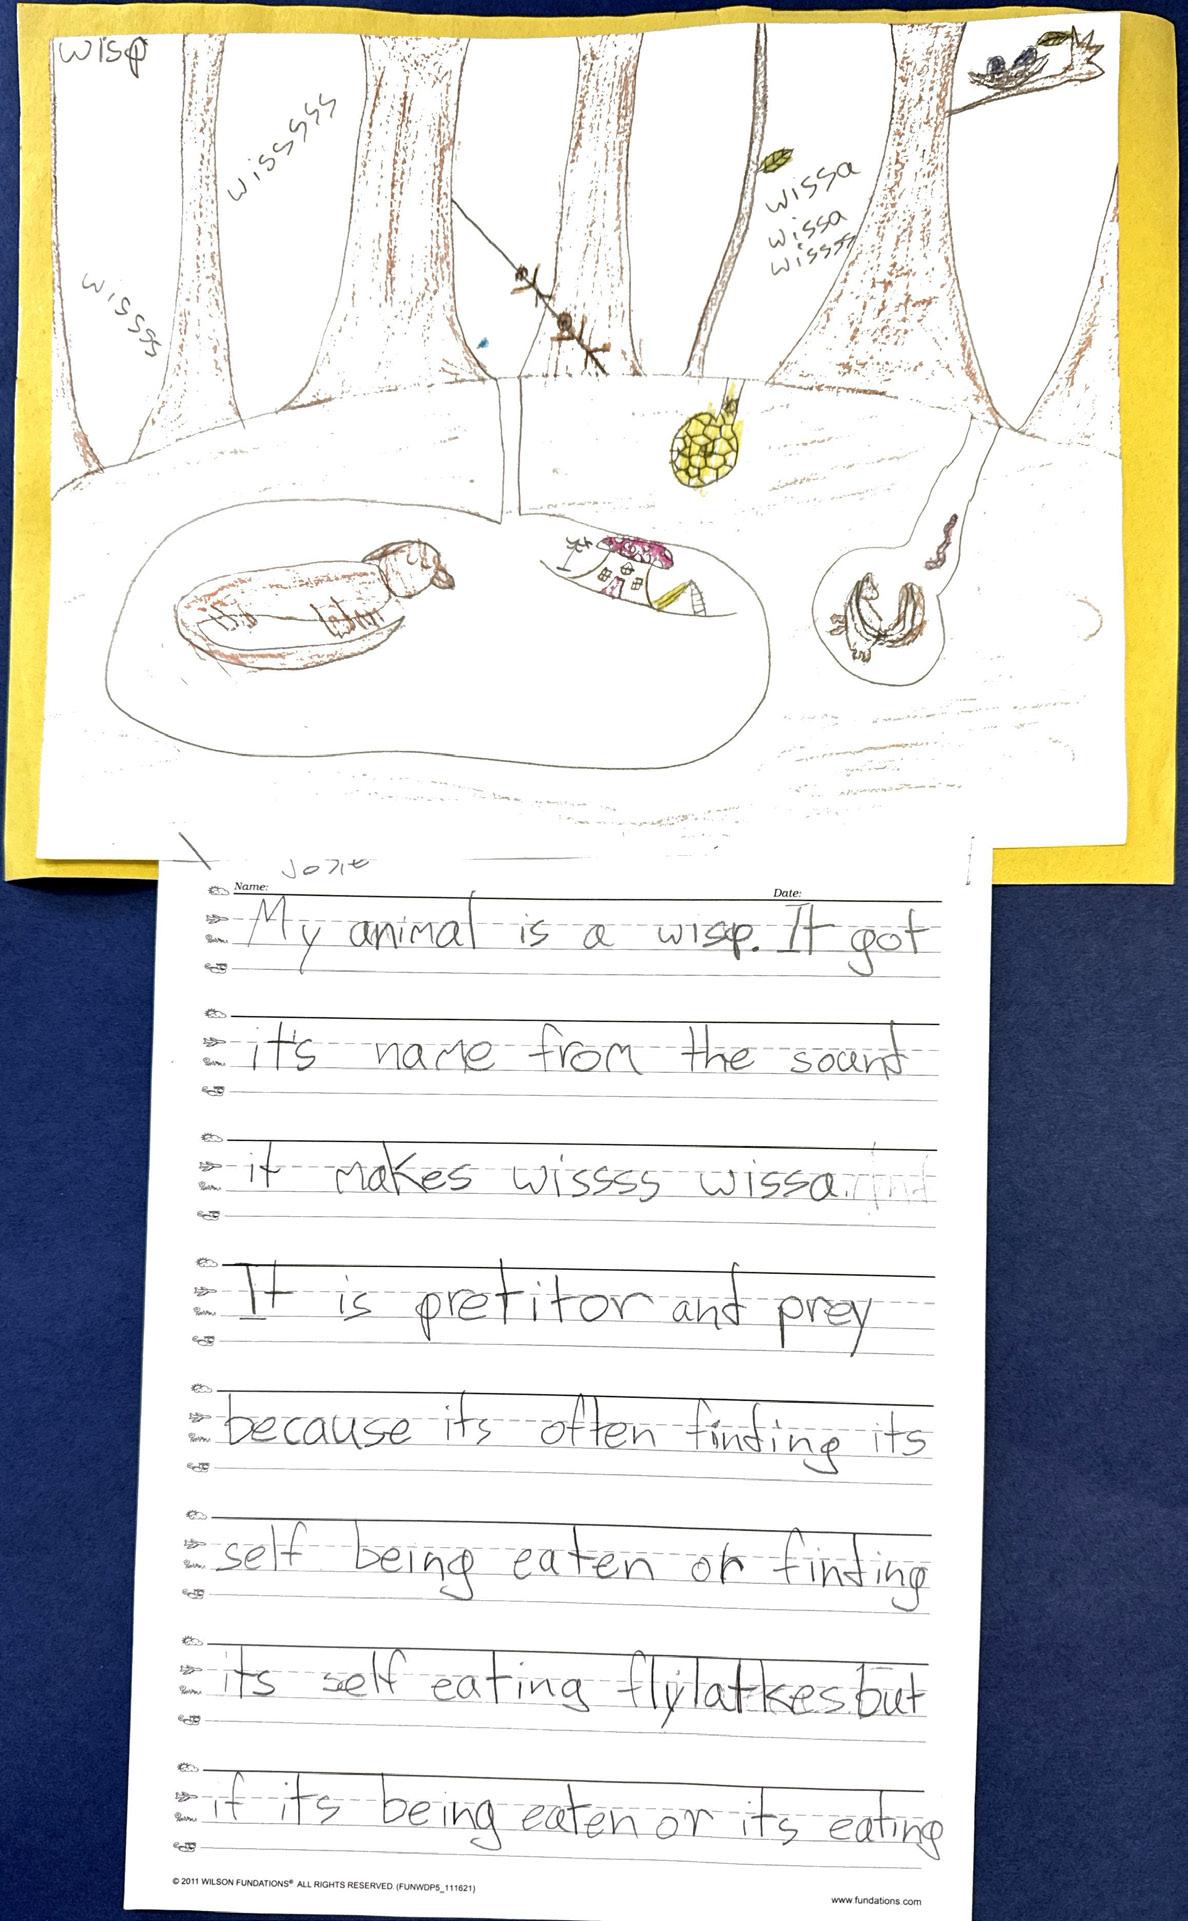 wisp
wisssss
wissss
wissa
wissa
wissss
Name:
Date:
My animal is a wisp. It got
it's name from the sound
it makes wissss wissa.
It is pretitor and prey
because its often finding its
self being eaten or finding
its self eating flylatkes.but
if its being eaten or its eating
© 2011 WILSON FUNDATIONS® ALL RIGHTS RESERVED. (FUNWDP5_111621)
www.fundations.com